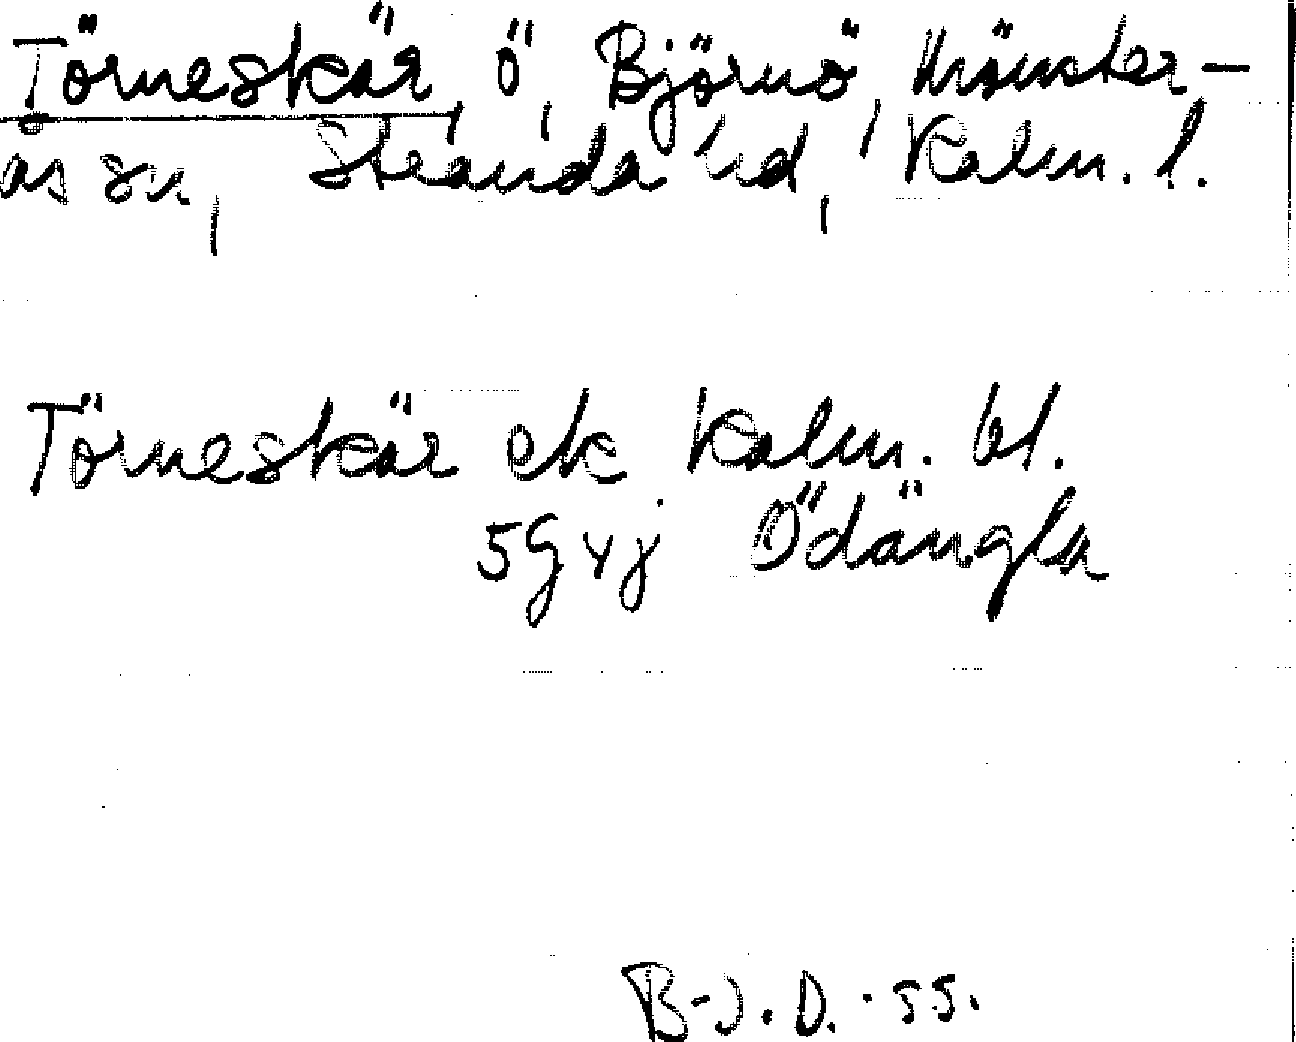 Törneskär, ö, Björnö, Mönster-
ås sn, Stranda hd, Kalm. l.
Törneskär ek Kalm. bl.
5G4j Ödängla
B-J.D.-55.